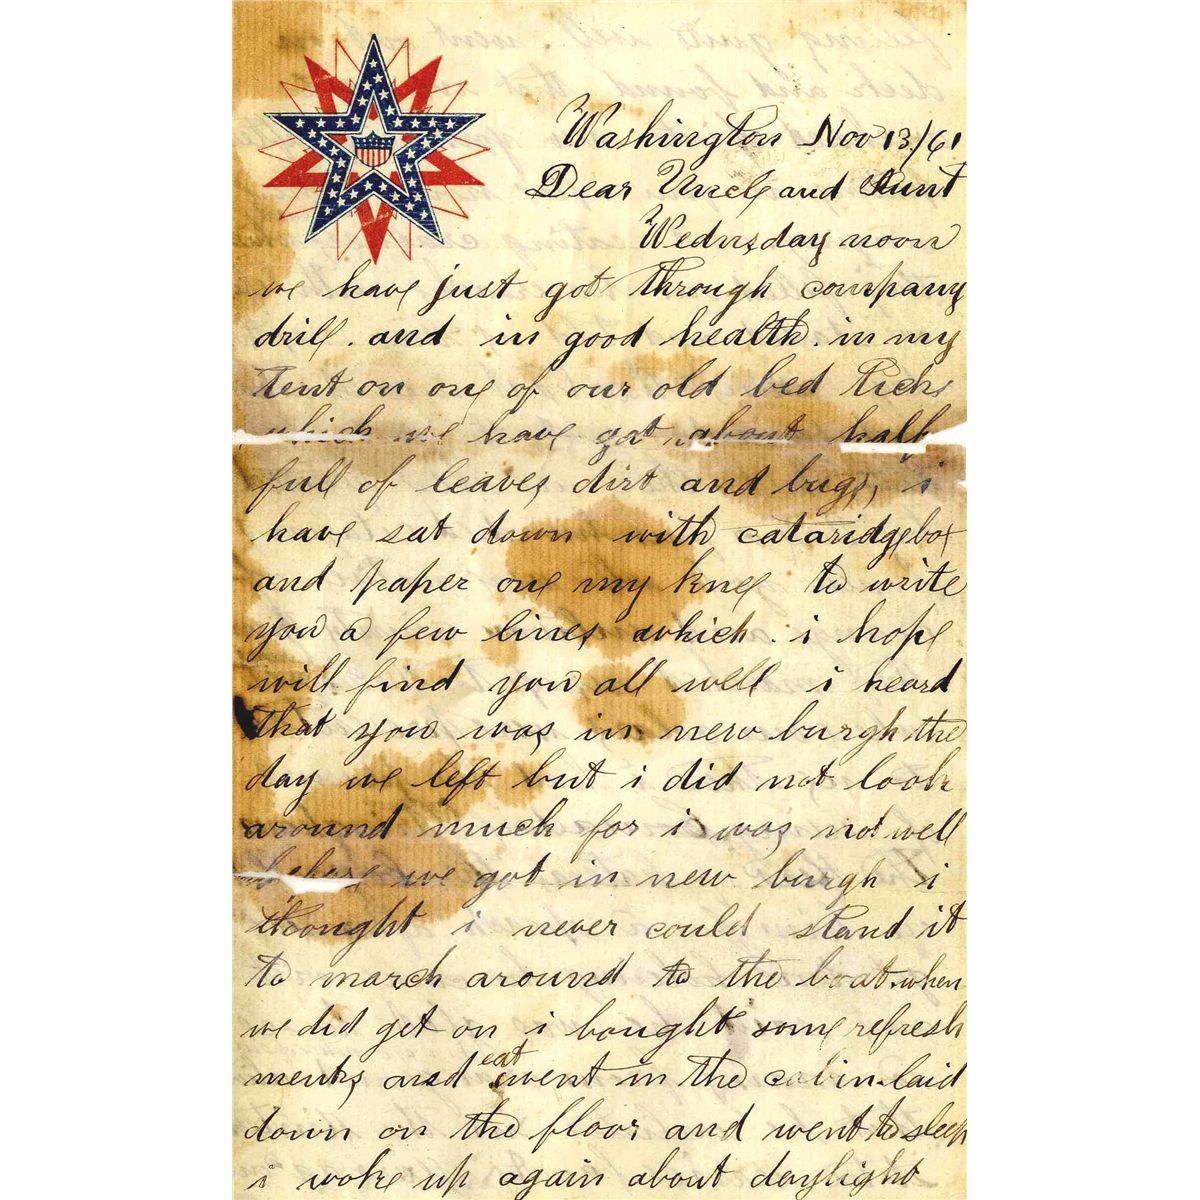 Washington Nov 13/61
Dear Uncle and Aunt
Wednsday noon
we have just got through company
drill. and in good health. in my
tent on one of our old bed ticks
which we have got about half
full of leaves dirt and bugs, i
have sat down with cataridgebox
and paper one my knee to write
you a few lines which. i hope
will find you all well i heard
that you was in new burgh the
day we left but i did not look
around much for i was not well
before we got in new burgh i
thought i never could stand it
to march around to the boat. when
we did get on i bought some refresh
ments and eat went in the cabin. laid
down on the floor and went to sleep
i woke up again about daylight